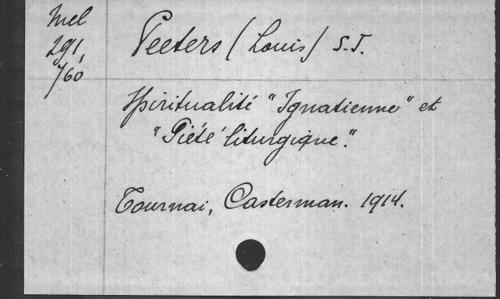 Mel
291,
760
Peeters (Louis) S.J.
Spiritualité "Ignatienne" et
"Piété liturgique."
Tournai, Casterman. 1914.